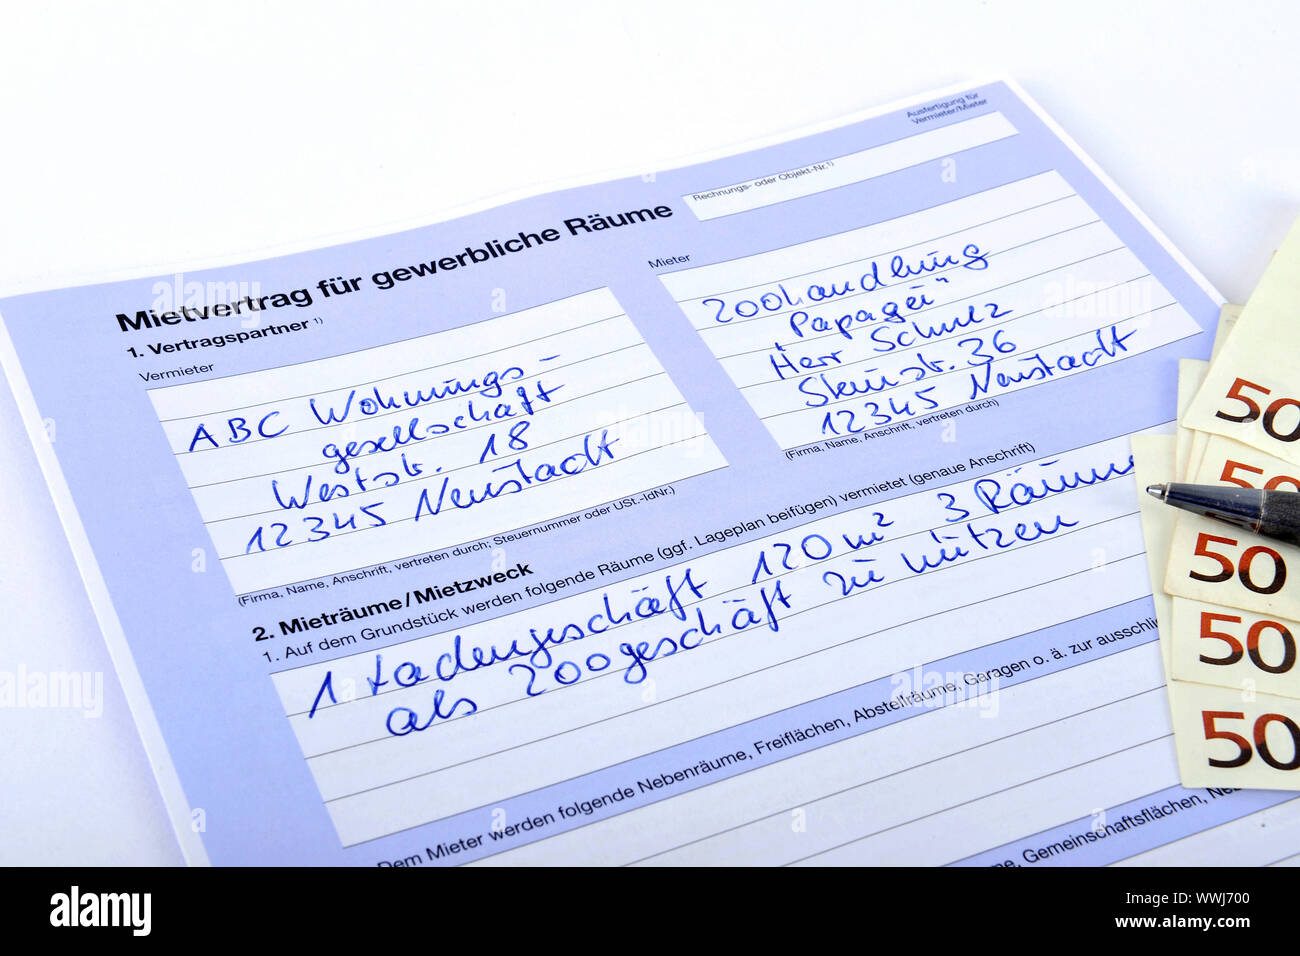 Ausfertigung für
Vermieter/Mieter
Rechnungs- oder Objekt-Nr.1)
Mietvertrag für gewerbliche Räume
1. Vertragspartner 1)
Vermieter
ABC Wohnungs-
gesellschaft
Weststr. 18
12345 Neustadt
(Firma, Name, Anschrift, vertreten durch; Steuernummer oder USt.-IdNr.)
Mieter
Zoohandlung
„Papagei“
Herr Schulz
Steinstr. 36
12345 Neustadt
(Firma, Name, Anschrift, vertreten durch)
2. Mieträume/Mietzweck
1. Auf dem Grundstück werden folgende Räume (ggf. Lageplan beifügen) vermietet (genaue Anschrift)
1 Ladengeschäft 120 m² 3 Räume
als Zoogeschäft zu nutzen
Dem Mieter werden folgende Nebenräume, Freiflächen, Abstellräume, Garagen o. ä. zur ausschli
me, Gemeinschaftsflächen, Ne
50
50
50
50
50
alamy
Image ID: WWJ700
www.alamy.com